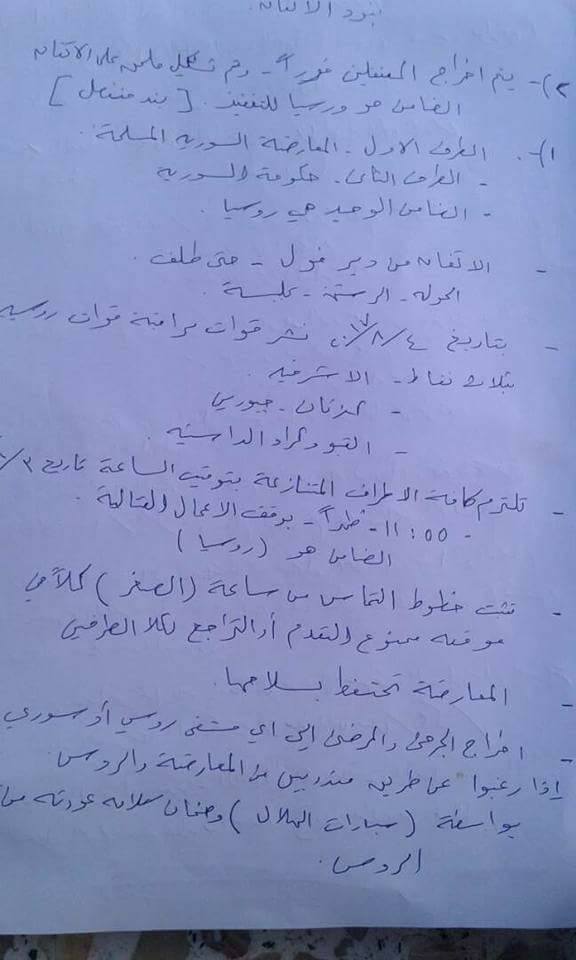 بنود الاتفاق
٢)- يتم اخراج المعتقلين فوراً - وتم تشكيل على الاتفاق
الضامن هو روسيا للتنفيذ. [ بند منفصل ]
١)- الطرف الاول - المعارضة السورية المسلحة.
- الطرف الثاني - حكومة السورية
- الضامن الوحيد هي روسيا
- الاتفاق من دير فول - حتى طلف.
الحوله - الرستن - تلبيسة
- بتاريخ ٤/٨/ نشر قوات مراقبة قوات روسية
بثلاث نقاط - الاشرفيه
- جبورين
- القبو
- تلتزم كافة الاطراف المتنازعة بتوقيت الساعة تاريخ ٣/
- ١١:٥٥ - ظهراً - بوقف الاعمال القتالية
الضامن هو (روسيا)
- تثبت خطوط التماس من ساعة (الصفر) كلاً في
موقعه ممنوع التقدم أو التراجع لكلا الطرفين
- المعارضة تحتفظ بسلاحها.
- اخراج الجرحى والمرضى الى اي مشفى روسي أو سوري
إذا رغبوا عن طريق مندوبين من المعارضة والروس
بواسطة (سيارات الهلال) وضمان سلامة عودته من
الروس.